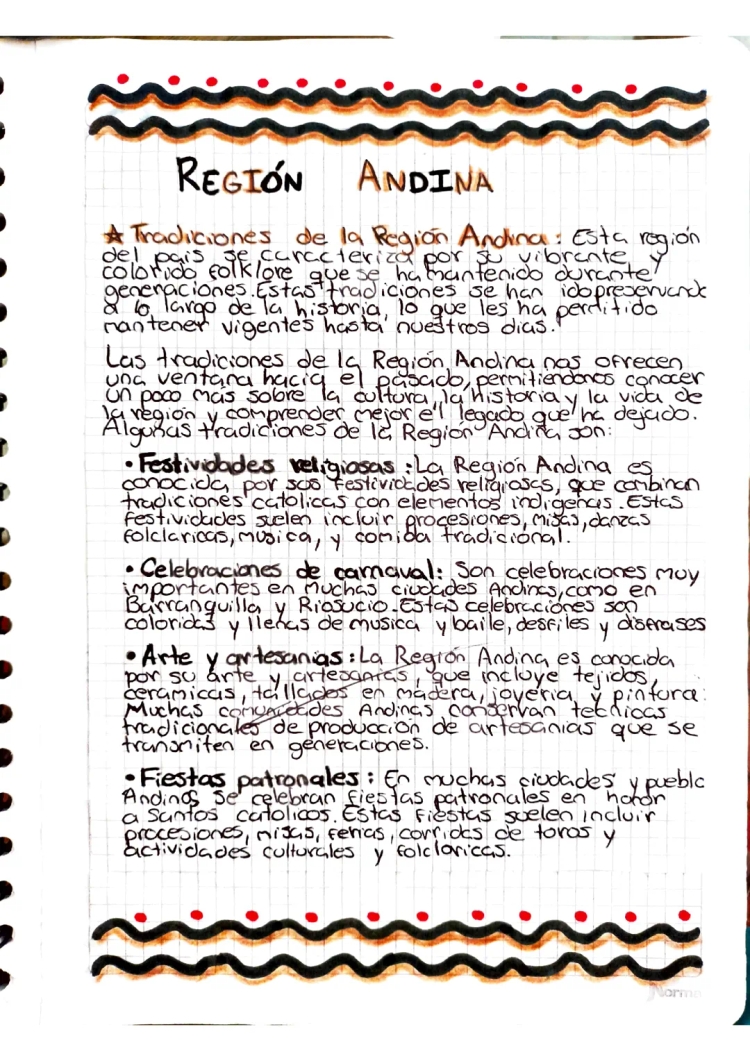 REGIÓN ANDINA
☆ Tradiciones de la Región Andina: Esta región
del país se caracteriza por su vibrante y
colorido folklore que se ha mantenido durante
generaciones. Estas tradiciones se han ido preservando
a lo largo de la historia, lo que les ha permitido
mantener vigentes hasta nuestros días.
Las tradiciones de la Región Andina nos ofrecen
una ventana hacia el pasado, permitiéndonos conocer
un poco más sobre la cultura, la historia y la vida de
la región y comprender mejor el legado que ha dejado.
Algunas tradiciones de la Región Andina son:
• Festividades religiosas: La Región Andina es
conocida por sus festividades religiosas, que combinan
tradiciones católicas con elementos indígenas. Estas
festividades suelen incluir procesiones, misas, danzas
folclaricas, musica, y comida tradicional.
• Celebraciones de carnaval: Son celebraciones muy
importantes en muchas ciudades Andinas, como en
Barranquilla y Riosucio. Estas celebraciones son
coloridas y llenas de musica y baile, desfiles y disfrases
• Arte y artesanías: La Región Andina es conocida
por su arte y artesanías, que incluye tejidos,
cerámicas, tallados en madera, joyería y pintura.
Muchas comunidades Andinas conservan técnicas
tradicionales de producción de artesanías que se
transmiten en generaciones.
• Fiestas patronales: En muchas ciudades y pueblo
Andinos se celebran fiestas patronales en honor
a santos católicos. Estas fiestas suelen incluir
procesiones, misas, ferias, corridas de toros y
actividades culturales y folcloricas.
Norma